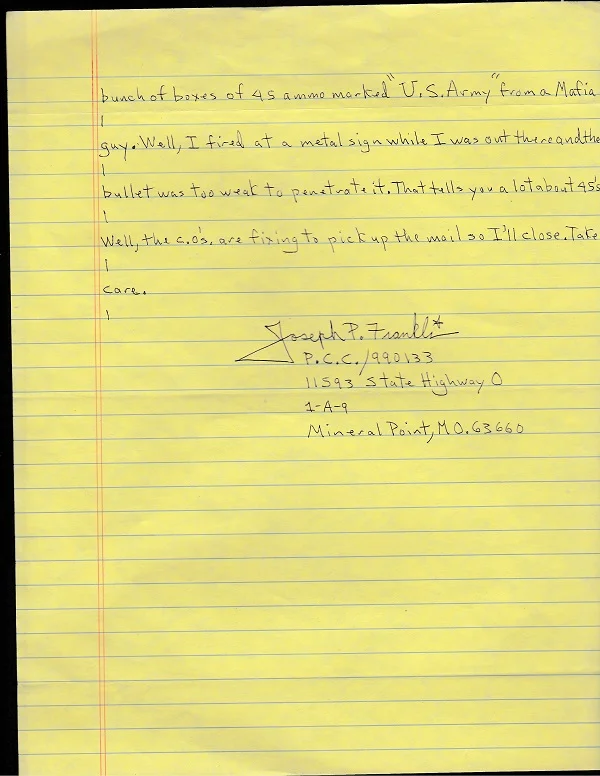 bunch of boxes of 45 ammo marked "U.S. Army" from a Mafia
guy. Well, I fired at a metal sign while I was out there and the
bullet was too weak to penetrate it. That tells you a lot about 45's
Well, the c.o's. are fixing to pick up the mail so I'll close. Take
care.
Joseph P. Franklin
P.C.C./990133
11593 State Highway O
1-A-9
Mineral Point, MO. 63660